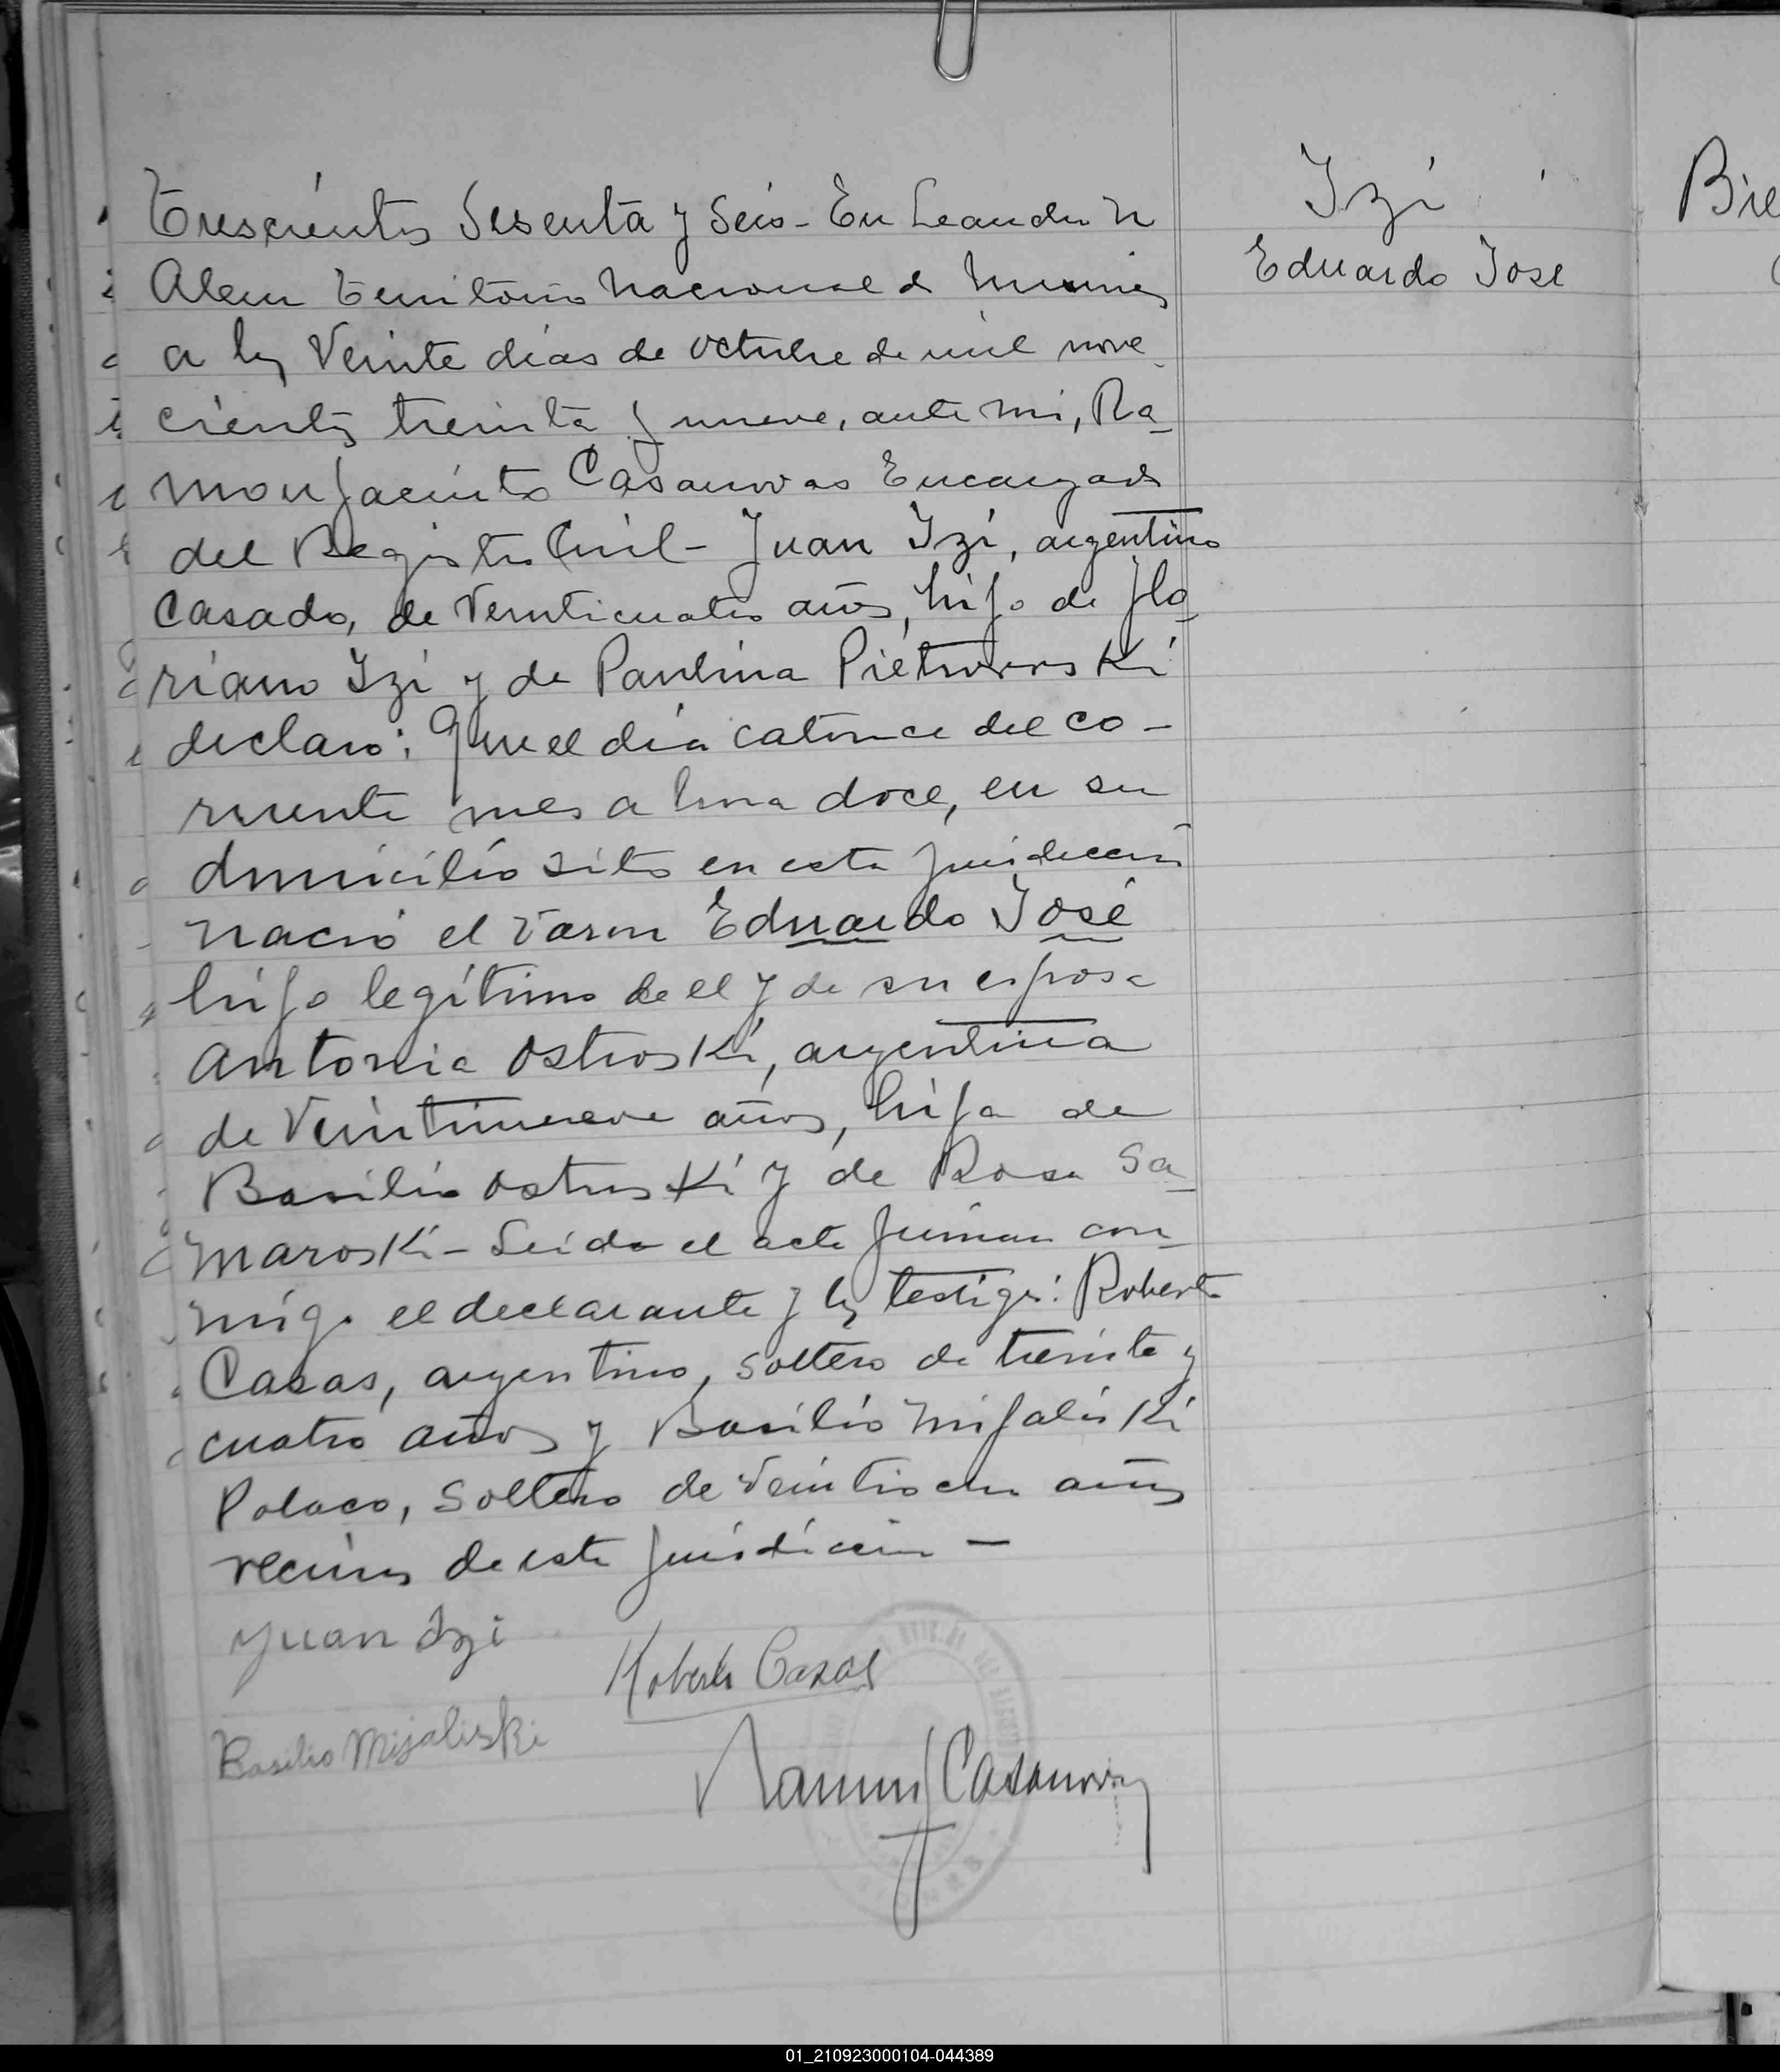 Trescientos Sesenta y Seis - En Leandro N
Alem Territorio Nacional de Misiones
a los Veinte dias de octubre de mil nove
cientos treinta y nueve, ante mi, Ra_
mon Jacinto Casanovas Encargado
del Registro Civil - Juan Izi, argentino
Casado, de Veinticuatro años, hijo de Flo_
riano Izi y de Paulina Pietrowski
declaró: Que el día catorce del co-
rriente mes a hora doce, en su
domicilio sito en esta jurisdicción
nació el Varon Eduardo José
hijo legítimo de el y de su esposa
Antonia Ostroski, argentina
de Veintinueve años, hija de
Basilio Ostroski y de Rosa Sa_
maroski - Leida el acta firman con_
migo el declarante y los testigos: Roberto
Casas, argentino, soltero de treinta y
cuatro años y Basilio Mijaliski
Polaco, Soltero de Veintiocho años
vecinos de esta jurisdicción -
Juan Izi
Roberto Casas
Basilio Mijaliski
Ramon J Casanovas
Izi
Eduardo José
Bie
01_210923000104-044389